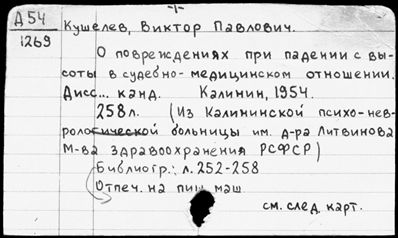 Д54
1269
Кушелев, Виктор Павлович.
О повреждениях при падении с вы-
соты в судебно-медицинском отношении.
Дисс... канд. Калинин, 1954.
258л. (Из Калининской психо-нев-
рологической больницы им. д-ра Литвинова
М-ва здравоохранения РСФСР)
Библиогр.: л. 252-258
Отпеч. на пиш. маш.
см. след. карт.